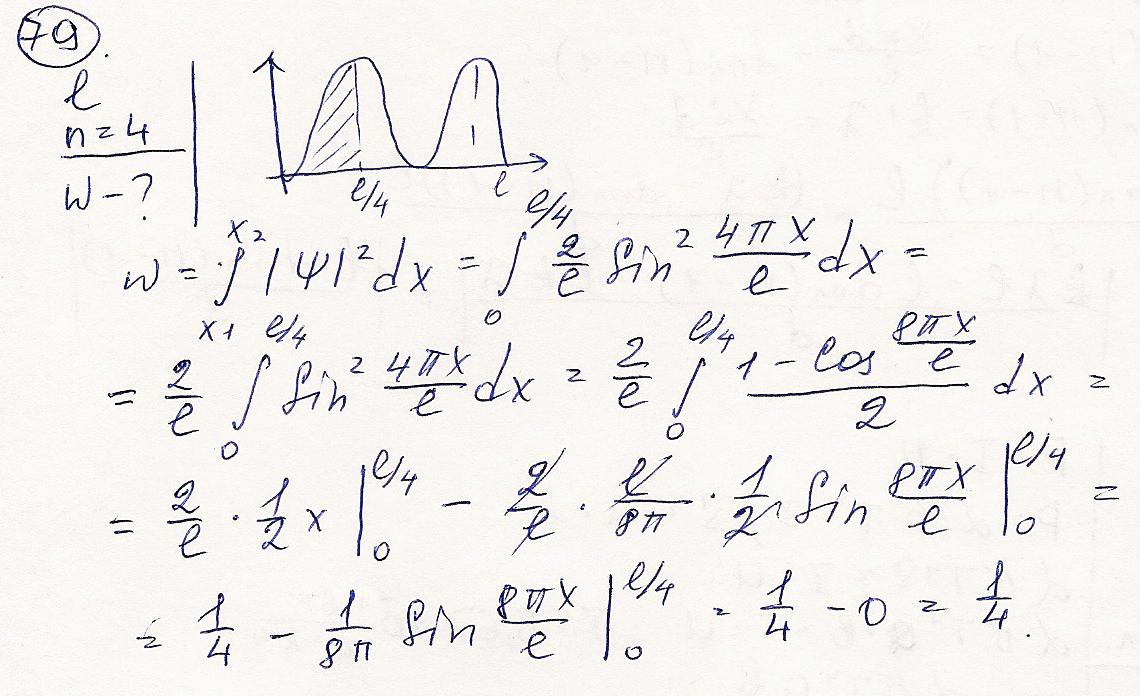 79.
l
n = 4
W - ?
l/4 l
w = ∫_{x1}^{x2} |Ψ|² dx = ∫_0^{l/4} 2/l sin² 4πx/l dx =
= 2/l ∫_0^{l/4} sin² 4πx/l dx = 2/l ∫_0^{l/4} (1 - cos 8πx/l)/2 dx =
= 2/l · 1/2 x |_0^{l/4} - 2/l · l/8π · 1/2 sin 8πx/l |_0^{l/4} =
= 1/4 - 1/8π sin 8πx/l |_0^{l/4} = 1/4 - 0 = 1/4.